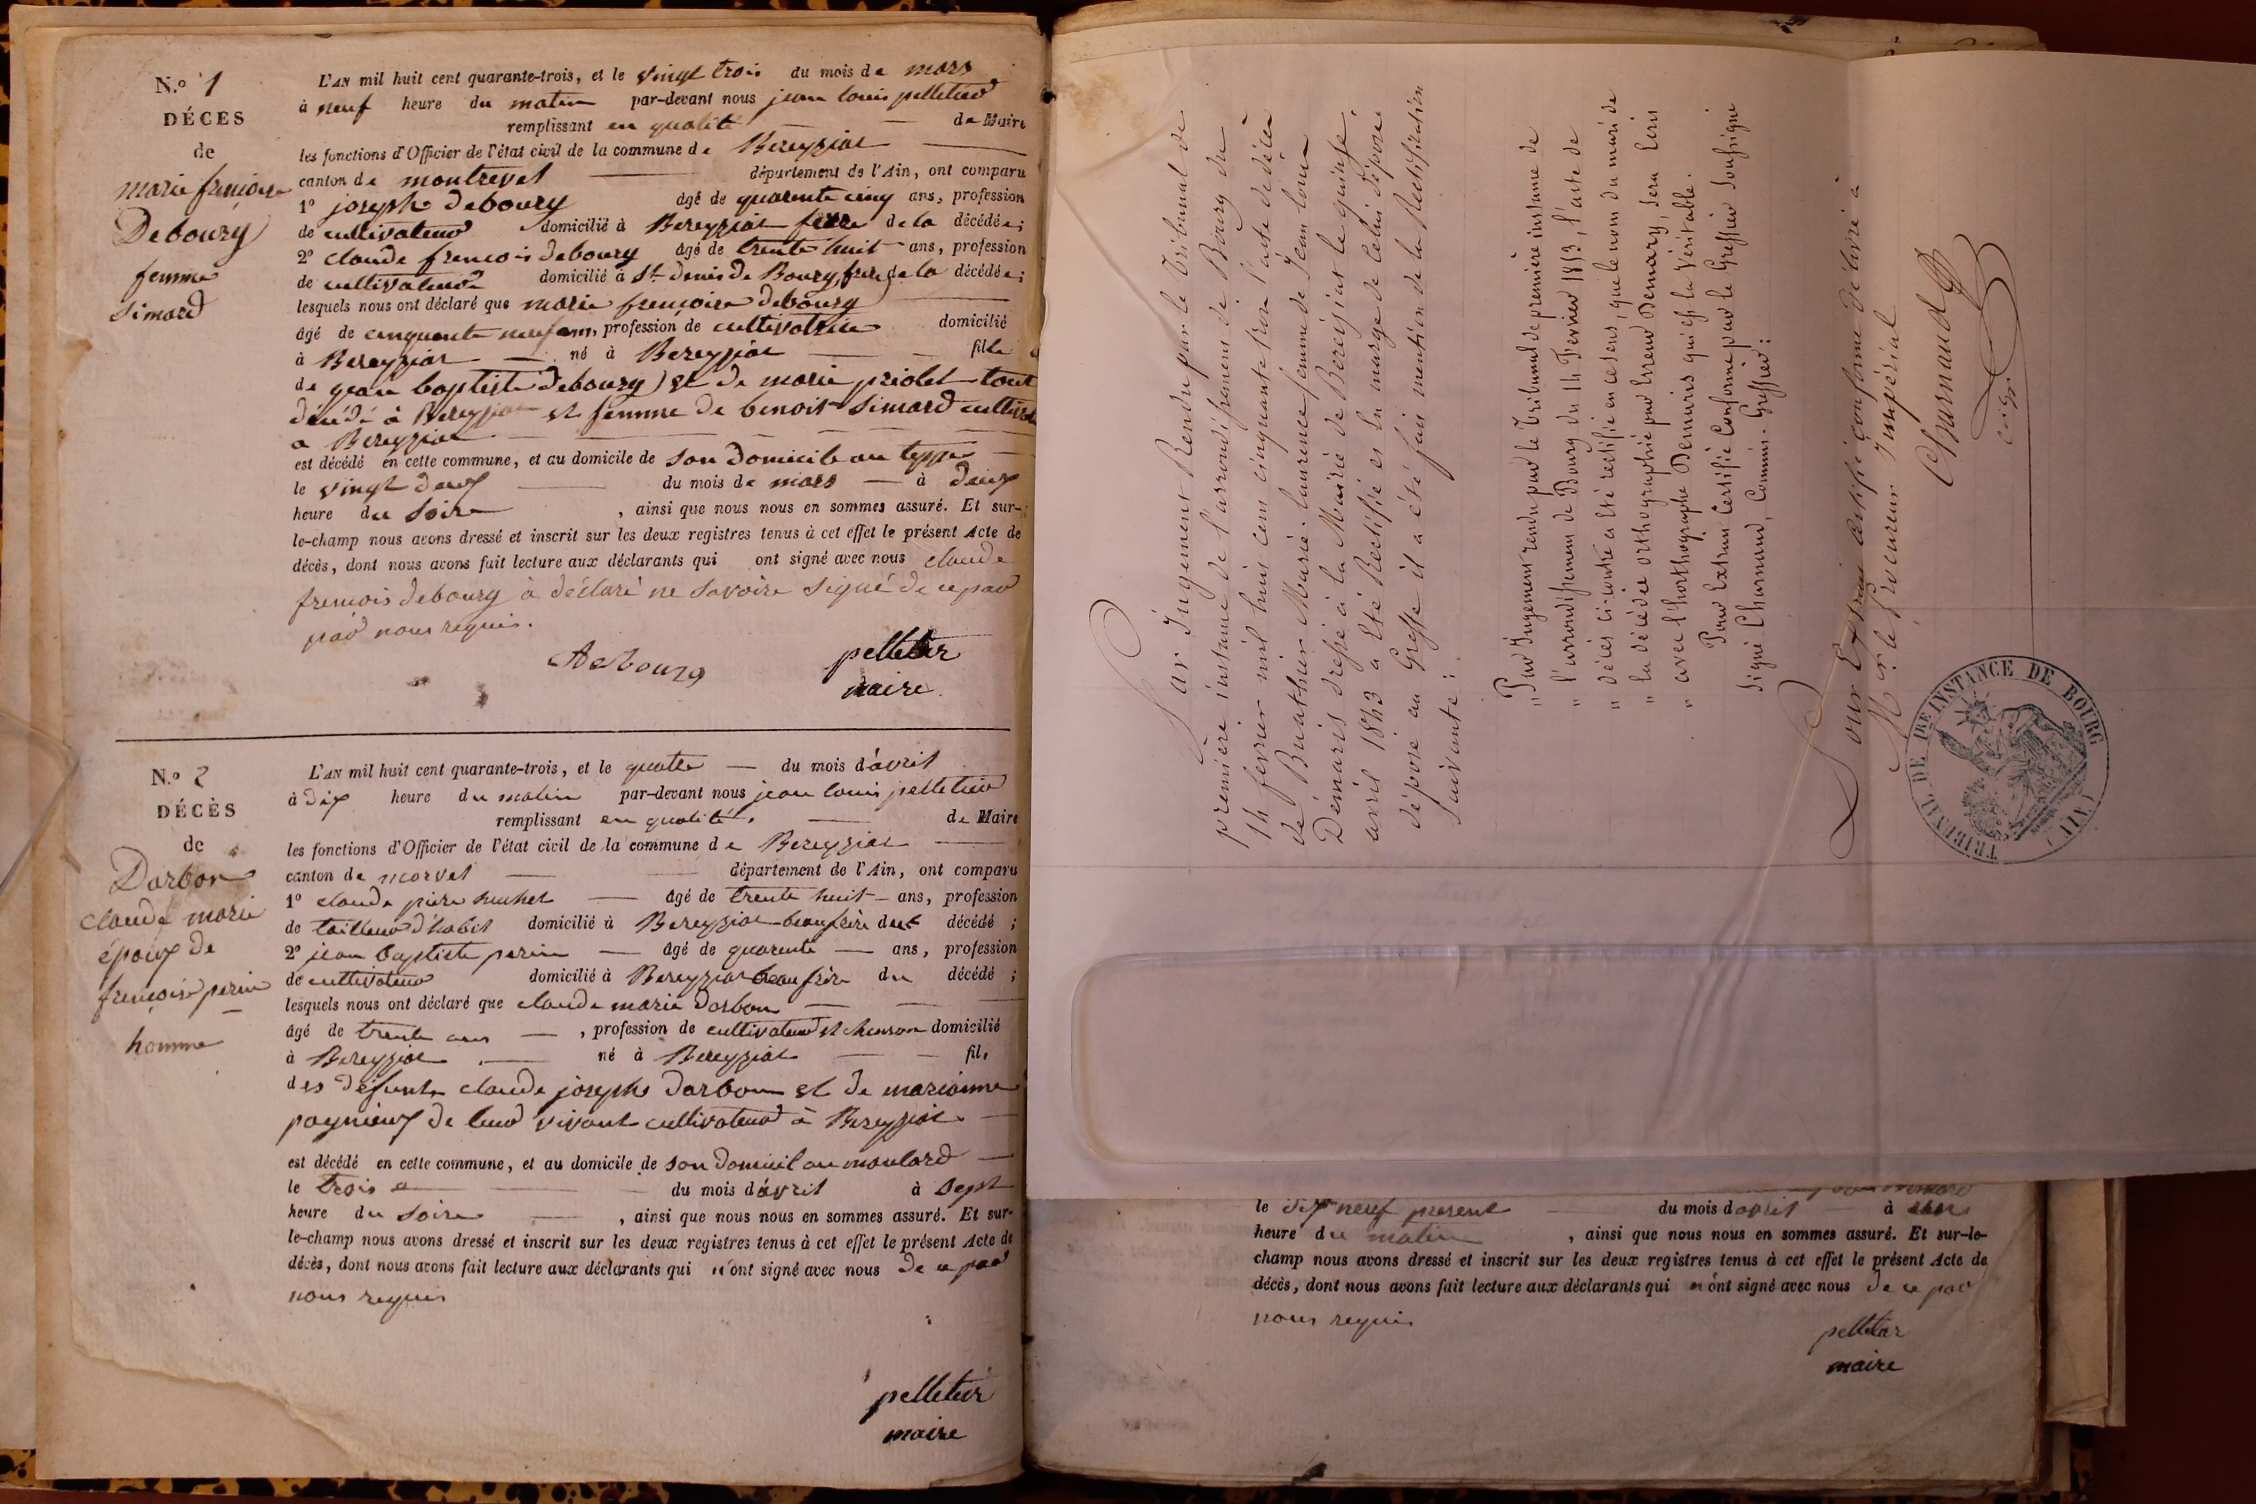 N.° 1
DÉCES
de
marie francoise
Debourg
femme
Simard
L'AN mil huit cent quarante-trois, et le vingt trois du mois de mars
à neuf heure du matin par-devant nous jean louis pelletier
remplissant en qualité de Maire
les fonctions d'Officier de l'état civil de la commune de Bereyziat
canton de montrevel département de l'Ain, ont comparu
1° joseph debourg âgé de quarente cinq ans, profession
de cultivateur domicilié à Bereyziat frere de la décédée;
2° claude francois debourg âgé de trente huit ans, profession
de cultivateur domicilié à St denis de Bourg, frere de la décédée;
lesquels nous ont déclaré que marie francoise debourg
âgé de cinquente neuf ans, profession de cultivatrice domicilié
à Bereyziat né à Bereyziat fille
de jean baptiste debourg et de marie priolet tout
décédé à Bereyziat et femme de benoit Simard cultivat
a Bereyziat
est décédé en cette commune, et au domicile de son domicile au
le vingt deux du mois de mars à deux
heure du soire , ainsi que nous nous en sommes assuré. Et sur-
le-champ nous avons dressé et inscrit sur les deux registres tenus à cet effet le présent Acte de
décès, dont nous avons fait lecture aux déclarants qui ont signé avec nous claude
francois debourg à déclaré ne savoire signé de ce par
par nous requis.
debourg
pelletier
maire
N.° 2
DÉCÈS
de
Darbon
claude marie
époux de
francoise perin
homme
L'AN mil huit cent quarante-trois, et le quatre du mois d'avril
à dix heure du matin par-devant nous jean louis pelletier
remplissant en qualité de Maire
les fonctions d'Officier de l'état civil de la commune de Bereyziat
canton de morvel département de l'Ain, ont comparu
1° claude piere âgé de trente huit ans, profession
de tailleur d'habit domicilié à Bereyziat beaufrère du décédé ;
2° jean baptiste perin âgé de quarente ans, profession
de cultivateur domicilié à Bereyziat beaufrère du décédé ;
lesquels nous ont déclaré que claude marie darbon
âgé de trente ans , profession de cultivateur et domicilié
à Bereyziat né à Bereyziat fils
des défunts claude joseph darbon et de marianne
de leur vivant cultivateur à Bereyziat
est décédé en cette commune, et au domicile de son domicil au moulard
le trois du mois d'avril à sept
heure du soire , ainsi que nous nous en sommes assuré. Et sur-
le-champ nous avons dressé et inscrit sur les deux registres tenus à cet effet le présent Acte de
décès, dont nous avons fait lecture aux déclarants qui n'ont signé avec nous de ce par
nous requis
pelletier
maire
Par Jugement Rendu par le Tribunal de
première instance de l'arrondissement de Bourg du
14 fevrier mil huit cent cinquante trois l'acte de décès
de Buathier Marie-laurence femme de Jean-louis
Démaris dressé à la Mairie de Bereisiat le quinze
avril 1843 a Eté Rectifié et en marge de celui déposé
déposé au Greffe il a été fait mention de la Rectification
suivante :
„ Par Jugement rendu par le Tribunal de première instance de
„ l'arrondissement de Bourg du 14 Fevrier 1853, l'acte de
„ décès ci-contre a Eté rectifié en ce sens, que le nom du mari de
„ la décédée orthographié par Erreur Demary, sera Ecrit
„ avec l'horthographe Demaris qui est la véritable.
Pour Extrait Certifié Conforme par le Greffier Soussigné
signé Charnaud, Commis-Greffier :
Pour Extrait certifié conforme délivré à
Mr. le Procureur Impérial
Charnaud
TRIBUNAL DE 1RE INSTANCE DE BOURG (AIN)
le dix neuf present du mois d'avril à
heure du matin , ainsi que nous nous en sommes assuré. Et sur-le-
champ nous avons dressé et inscrit sur les deux registres tenus à cet effet le présent Acte de
décès, dont nous avons fait lecture aux déclarants qui n'ont signé avec nous de ce par
nous requis
pelletier
maire